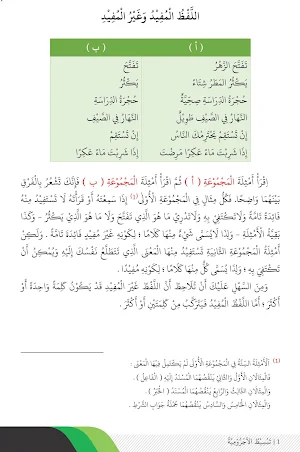 اللَّفْظُ الْمُفِيْدُ وَغَيْرُ الْمُفِيْدِ
( أ ) ( ب )
تَفَتَّحَ الزَّهْرُ تَفَتَّحَ
يَكْثُرُ الْمَطَرُ شِتَاءً يَكْثُرُ
حُجْرَةُ الدِّرَاسَةِ صِحِّيَّةٌ حُجْرَةُ الدِّرَاسَةِ
النَّهَارُ فِي الصَّيْفِ طَوِيْلٌ النَّهَارُ فِي الصَّيْفِ
إِنْ تَسْتَقِمْ يَحْتَرِمْكَ النَّاسُ إِنْ تَسْتَقِمْ
إِذَا شَرِبْتَ مَاءً عَكِرًا مَرِضْتَ إِذَا شَرِبْتَ مَاءً عَكِرًا
اِقْرَأْ أَمْثِلَةَ الْمَجْمُوْعَةِ ( أ ) ثُمَّ اقْرَأْ أَمْثِلَةَ الْمَجْمُوْعَةِ ( ب ) فَإِنَّكَ تَشْعُرُ بِالْفَرْقِ
بَيْنَهُمَا وَاضِحًا. فَكُلُّ مِثَالٍ فِي الْمَجْمُوْعَةِ الْأُوْلَى (١) إِذَا سَمِعْتَهُ أَوْ قَرَأْتَهُ لَا تَسْتَفِيْدُ مِنْهُ
فَائِدَةً تَامَّةً وَلَا تَكْتَفِي بِهِ وَلَا تَدْرِيْ مَا هُوَ الَّذِي تَفَتَّحَ وَلَا مَا هُوَ الَّذِيْ يَكْثُرُ - وَكَذَا
بَقِيَّةُ الْأَمْثِلَةِ - وَلِذَا لَا يُسَمَّى شَيْءٌ مِنْهَا كَلَامًا ؛ لِكَوْنِهِ غَيْرَ مُفِيْدٍ فَائِدَةً تَامَّةً . وَلٰكِنْ
أَمْثِلَةُ الْمَجْمُوْعَةِ الثَّانِيَةِ تَسْتَفِيْدُ مِنْهَا الْمَعْنَى الَّذِي تَتَطَلَّعُ نَفْسُكَ إِلَيْهِ وَيُمْكِنُ أَنْ
تَكْتَفِيَ بِهِ ؛ وَلِذَا يُسَمَّى كُلٌّ مِنْهَا كَلَامًا ؛ لِكَوْنِهِ مُفِيْدًا .
وَمِنَ السَّهْلِ عَلَيْكَ أَنْ تُلَاحِظَ أَنَّ اللَّفْظَ غَيْرَ الْمُفِيْدِ قَدْ يَكُوْنُ كَلِمَةً وَاحِدَةً أَوْ
أَكْثَرَ ؛ أَمَّا اللَّفْظُ الْمُفِيْدُ فَيَتَرَكَّبُ مِنْ كَلِمَتَيْنِ أَوْ أَكْثَرَ .
(١) الْأَمْثِلَةُ السِّتَّةُ فِي الْمَجْمُوْعَةِ الْأُوْلَى لَمْ يَكْتَمِلْ فِيْهَا الْمَعْنَى :
فَالْمِثَالَانِ الْأَوَّلُ وَالثَّانِيْ يَنْقُصُهُمَا الْمُسْنَدُ إِلَيْهِ ( الْفَاعِلُ ) .
وَالْمِثَالَانِ الثَّالِثُ وَالرَّابِعُ يَنْقُصُهُمَا الْمُسْنَدُ ( الْخَبَرُ ) .
وَالْمِثَالَانِ الْخَامِسُ وَالسَّادِسُ يَنْقُصُهُمَا جُمْلَةُ جَوَابِ الشَّرْطِ .
١ | تَبْسِيْطُ الْآجُرُّوْمِيَّةِ